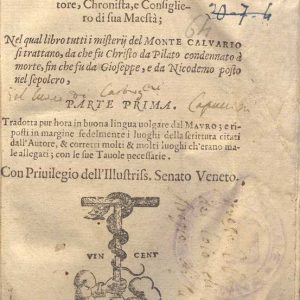 tore, Chronista, e Consiglie-
ro di sua Maestà;
20-7-4
Nel qual libro tutti i misterij del MONTE CALVARIO
si trattano, da che fu Christo da Pilato condennato à
morte, fin che fu da Gioseppe, e da Nicodemo posto
nel sepolcro,
PARTE PRIMA.
Tradotta pur hora in buona lingua volgare dal MAVRO; e ri-
posti in margine fedelmente i luoghi della scrittura citati
dall'Autore, & corretti molti & molti luoghi ch'erano ma-
le allegati; con le sue Tauole necessarie.
Con Priuilegio dell'Illustriss. Senato Veneto.
VIN CENT